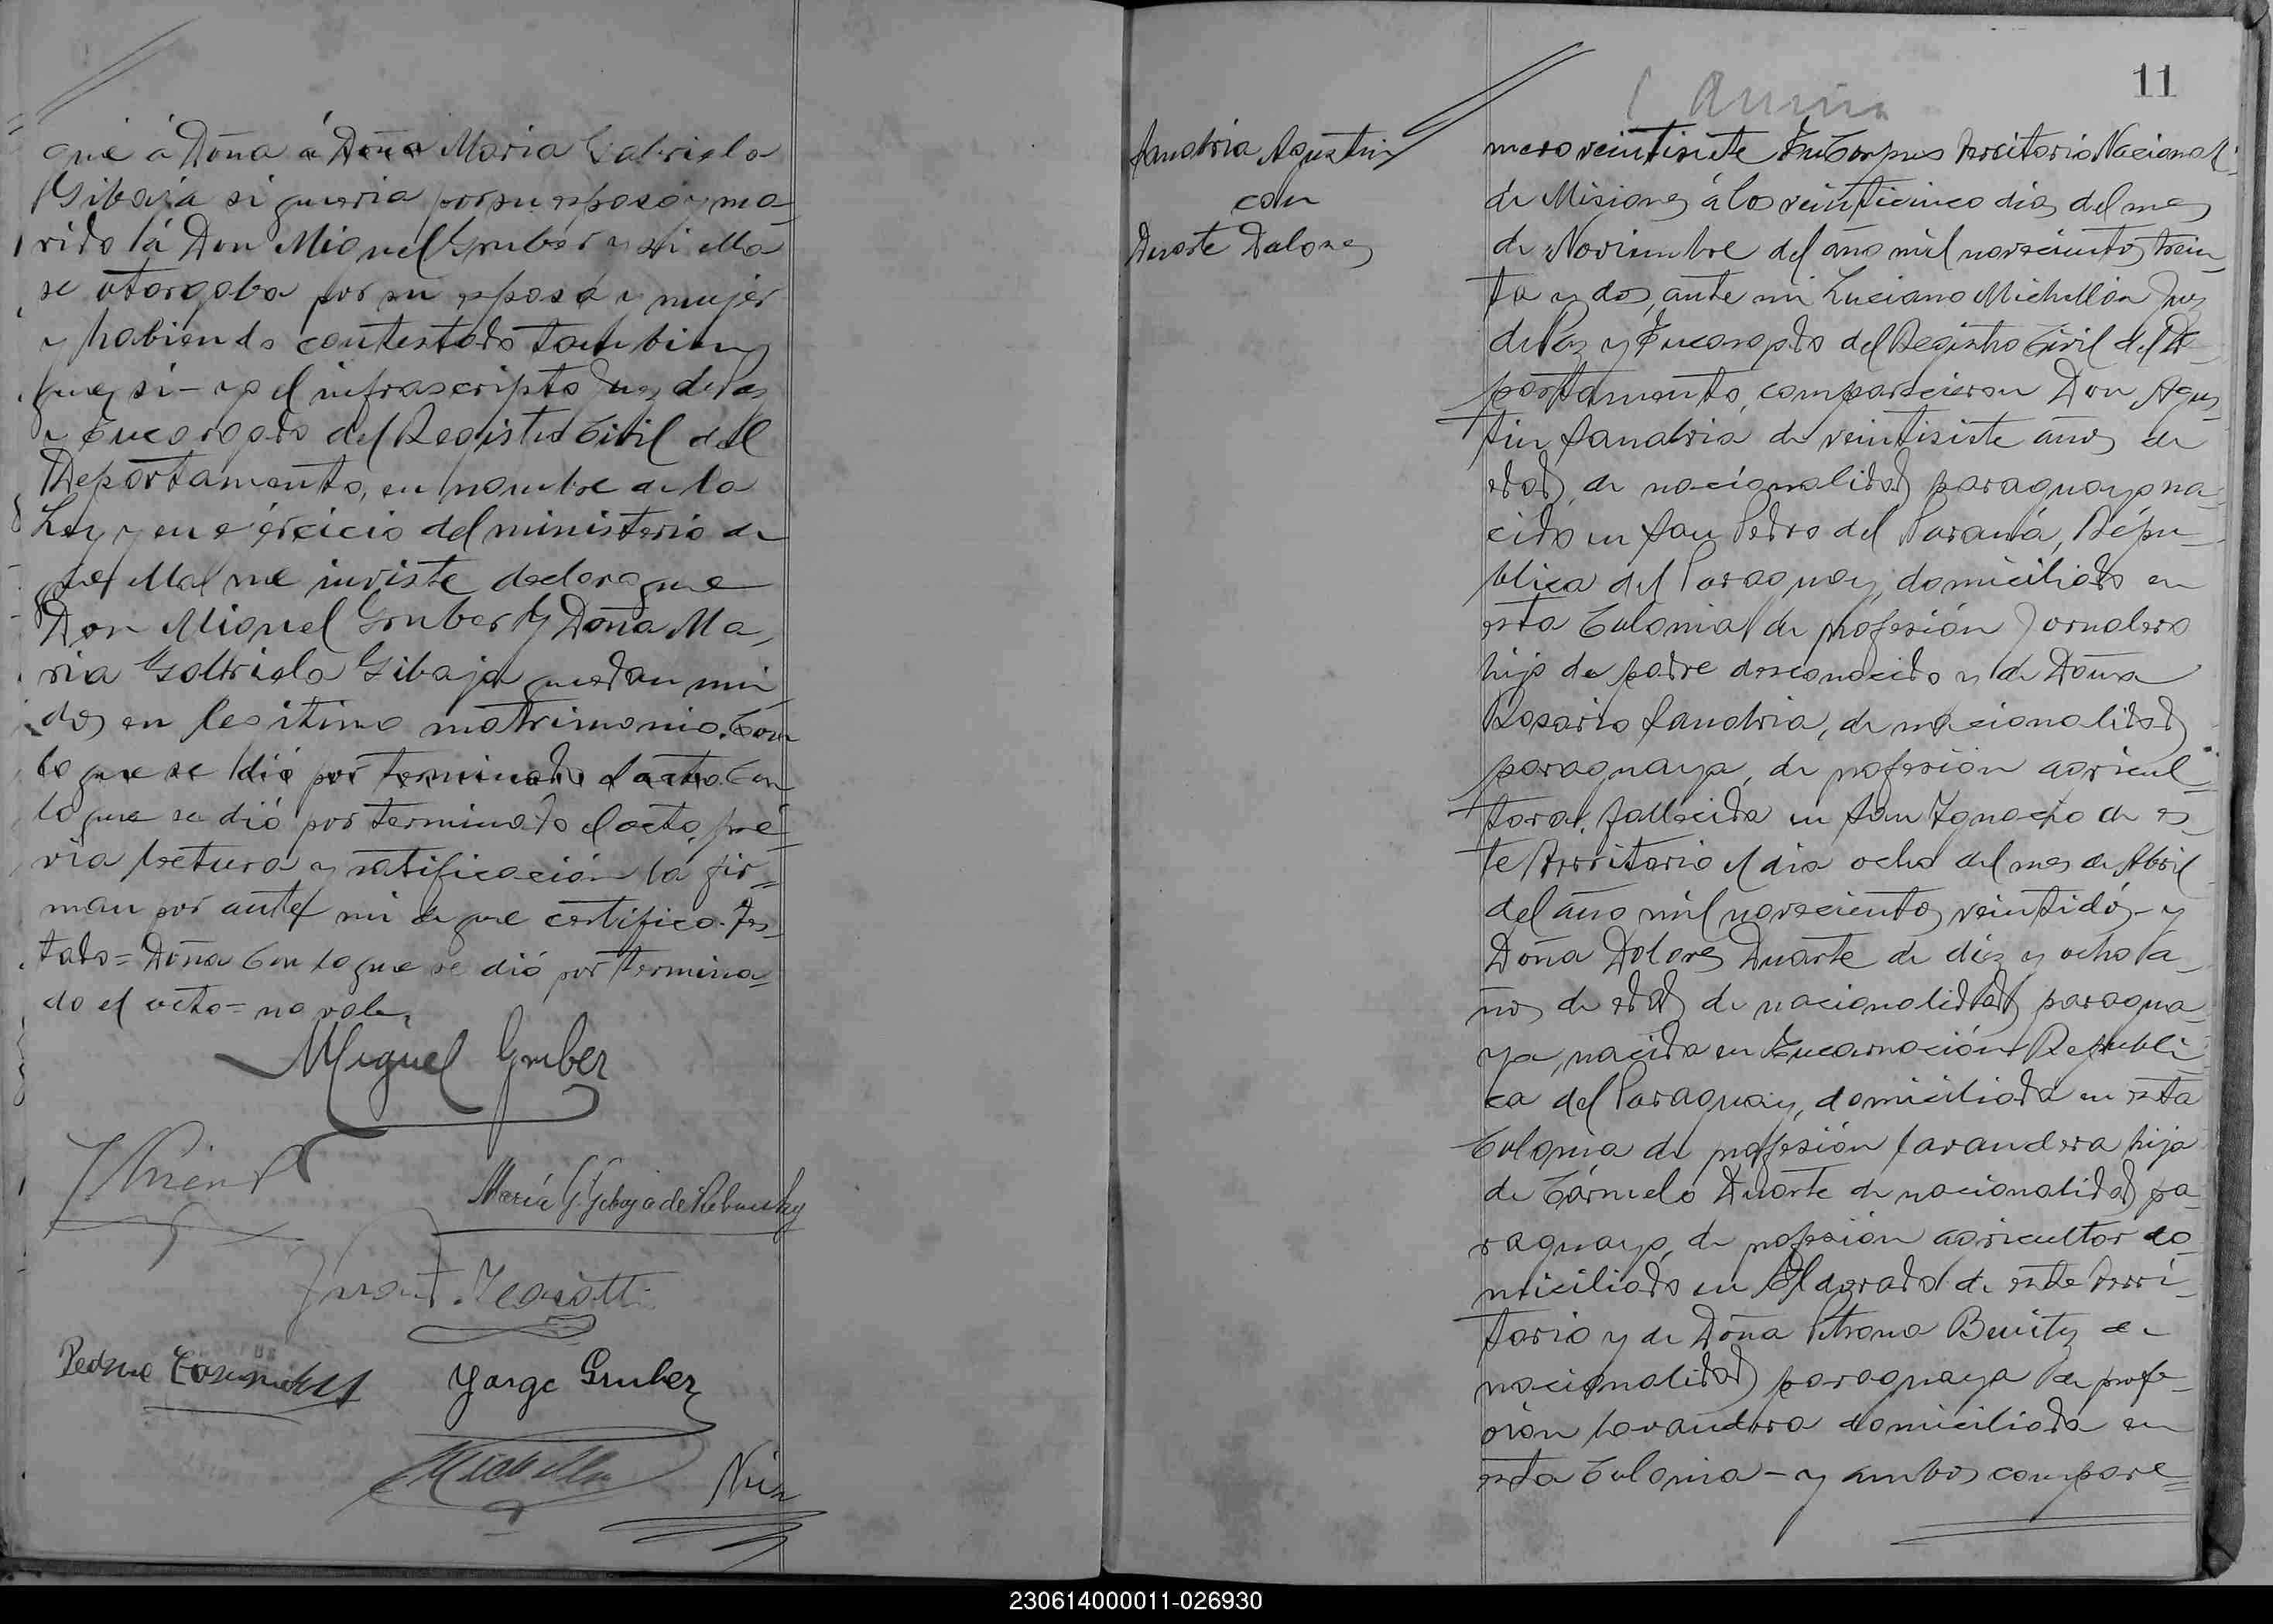 que á Doña á Doña Maria Gabriela
Gibaja si queria por su esposo y ma-
rido á Don Miguel Gruber y si ella
se otorgaba por su esposa y mujer
y habiendo contestado tambien
que si - yo el infrascripto Juez de Paz
y Encargado del Registro Civil del
Departamento, en nombre de la
Ley y en ejercicio del ministerio de
que ella me inviste declaro que
Don Miguel Gruber y Doña Ma-
ria Gabriela Gibaja quedan uni
dos en legitimo matrimonio. Con
lo que se dió por terminado el acto. Con
lo que se dió por terminado el acto, pre-
via lectura y ratificación la fir=
man por ante mi de que certifico. Tes-
tado = Doña Con lo que se dió por termina=
do el acto = no vale,
Miguel Gruber
María G. Gibaja de
Yorge Gruber
Michellon
11
Sanabria Agustin
con
Duarte Dolores
mero veintisiete En Corpus Territorio Nacional
de Misiones á los veinticinco dias del mes
de Noviembre del año mil novecientos trein-
ta y dos, ante mi Luciano Michellon Juez
de Paz y Encargado del Registro Civil del De-
partamento, comparecieron Don Agus-
tin Sanabria de veintisiete años de
edad, de nacionalidad paraguayo na-
cido en San Pedro del Paraná, Répu-
blica del Paraguay, domiciliado en
esta Colonia de profesión Jornalero
hijo de padre desconocido y de Doña
Rosario Sanabria, de nacionalidad
paraguaya, de profesion agricul-
tora, fallecida en San Ignacio de es-
te Territorio el dia ocho del mes de Abril
del año mil novecientos veintidós - y
Doña Dolores Duarte de diez y ocho a-
ños de edad de nacionalidad paragua-
ya, nacida en Encarnación Republi-
ca del Paraguay, domiciliada en esta
Colonia de profesión lavandera hija
de Cármelo Duarte de nacionalidad pa-
raguayo, de profesion agricultor do-
miciliado en Eldorado de este terri-
torio y de Doña Petrona Benitez de
nacionalidad paraguaya de profe-
sion lavandera domiciliada en
esta Colonia - y ambos compare=
230614000011-026930